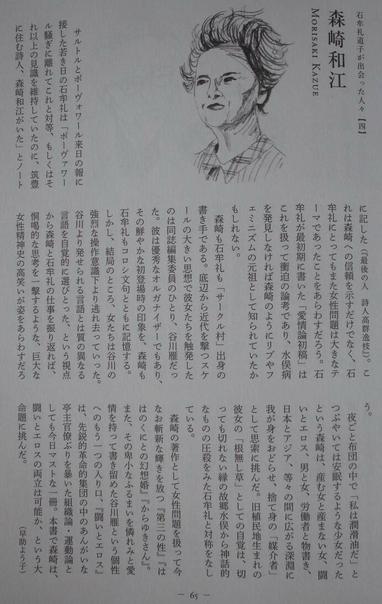 石牟礼道子が出会った人々【四】
森崎和江
MORISAKI KAZUE
サルトルとボーヴォワール来日の報に
接した若き日の石牟礼は「ボーヴァワー
ル騒ぎに離れてこれと対等、もしくはそ
れ以上の見識を維持していたのに、筑豊
に住む詩人、森崎和江がいた」とノート
に記した(『最後の人 詩人高群逸枝』)。こ
れは森崎への信頼を示すだけでなく、石
牟礼にとってもまた女性問題は大きなテ
ーマであったことをあらわすだろう。石
牟礼が最初期に書いた「愛情論初稿」は
これを扱って衝迫の論考であり、水俣病
を発見しなければ森崎のようにリブやフ
ェミニズムの元祖として知られていたか
もしれない。
森崎も石牟礼も「サークル村」出身の
書き手である。底辺から近代を撃つスケ
ールの大きい思想で彼女たちを触発した
のは同誌編集委員のひとり、谷川雁だっ
た。彼は優秀なオルガナイザーでもあり、
その鮮やかな初登場時の印象を、森崎も
石牟礼もコロシ文句とともに記憶する。
しかし、結局のところ、女たちは谷川の
強烈な操作意識下より逃れ去っていった。
谷川より発せられる言語とは質の異なる
言語を自覚的に選びとった、という視点
から森崎と石牟礼の仕事を振り返れば、
恫喝的な思考を一撃するような、巨大な
女性精神史の高笑いが姿をあらわすだろ
う。
夜ごと布団の中で「私は潤滑油だ」と
つぶやいては安眠するような少女だった
という森崎は、産む女と産まない女、闘
いとエロス、男と女、労働者と物書き、
日本とアジア、等々の間に広がる深淵に
我が身をおどらせ、捨て身の「媒介者」
として思索に挑んだ。旧植民地生まれの
彼女の「根無し草」としての自覚は、切
っても切れない縁の故郷水俣から神話的
なものの圧殺をみた石牟礼と対称をなし
ている。
森崎の著作として女性問題を扱って今
なお斬新な輝きを放つ『第三の性』『は
はのくにとの幻想婚』『からゆきさん』。
また、その卑小なふるまいを憐れみと愛
情を持って書き留めた谷川雁という個性
へのもう一つの入り口、『闘いとエロス』
は、先鋭的革命的集団の中のあんがいな
亭主官僚ぶりを暴いた組織論・運動論と
しても今日マストな一冊。本書で森崎は、
闘いとエロスの両立は可能か、という大
命題に挑んだ。
(早助よう子)
― 65 ―